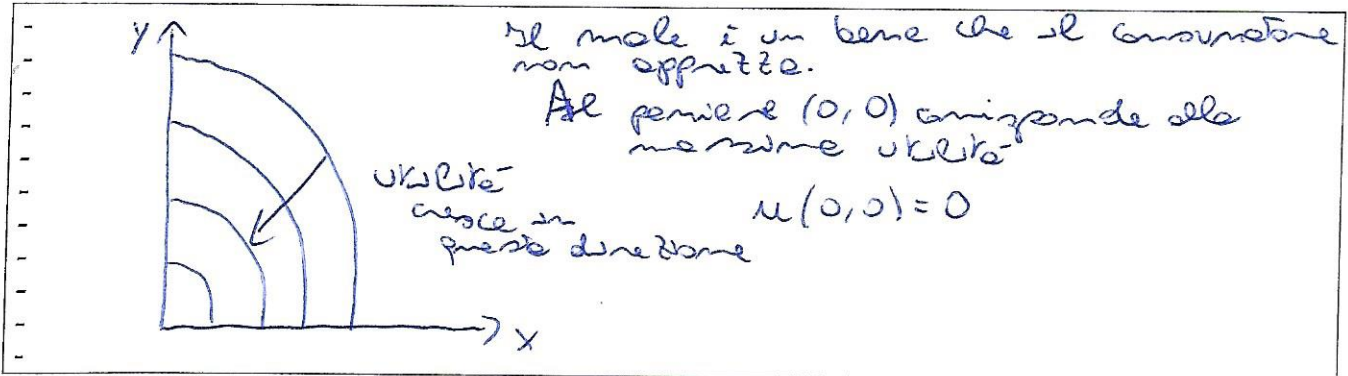 y
Il male è un bene che il consumatore
non apprezza.
Al paniere (0,0) corrisponde alla
massima utilità
utilità
cresce in
questa direzione
u(0,0)=0
x